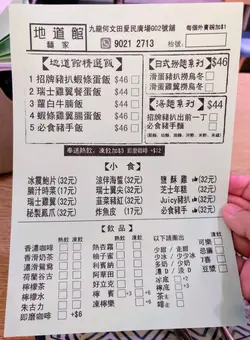 地道館
麵家
九龍何文田愛民廣場G02號舖
每個外賣碗加$1
9021 2713
枱號:
【地道館精選飯】
1 招牌豬扒蝦條蛋飯 $46
2 瑞士雞翼餐蛋飯 $46
3 蘿白牛腩飯 $46
4 蝦條雞腿蛋飯 $46
5 必食豬手飯 $46
奉送熱飲，凍飲加$3
即磨咖啡 +$12
日式撈麵系列 $46
滑蛋豬扒撈烏冬
滑蛋雞翼撈烏冬
湯麵系列 $44
招牌豬扒出前一丁
必食豬手麵
【小食】
冰鎮鮑片(32元)
腩汁時菜(17元)
瑞士雞翼(32元)
秘製鳳爪(32元)
涼伴海蜇(32元)
瑞士翼尖(32元)
韮菜豬紅(32元)
炸魚皮(17元)
鹽酥雞(32元)
芝士年糕(32元)
Juicy豬扒(32元)
必食豬手(32元)
【飲品】
熱飲 凍飲
香濃咖啡
香滑奶茶
濃滑鴛鴦
荷蘭谷古
檸檬茶
檸檬水
朱古力
即磨咖啡 +$6
熱飲 凍飲
熱杏霜
柚子蜜
利賓納
阿華田
好立克
檸蜜
凍檸樂
以下請圈出
少甜/走甜
少冰/走冰
多奶/少奶
濃 / 淡
冰底
可樂
忌廉
7喜
豆漿